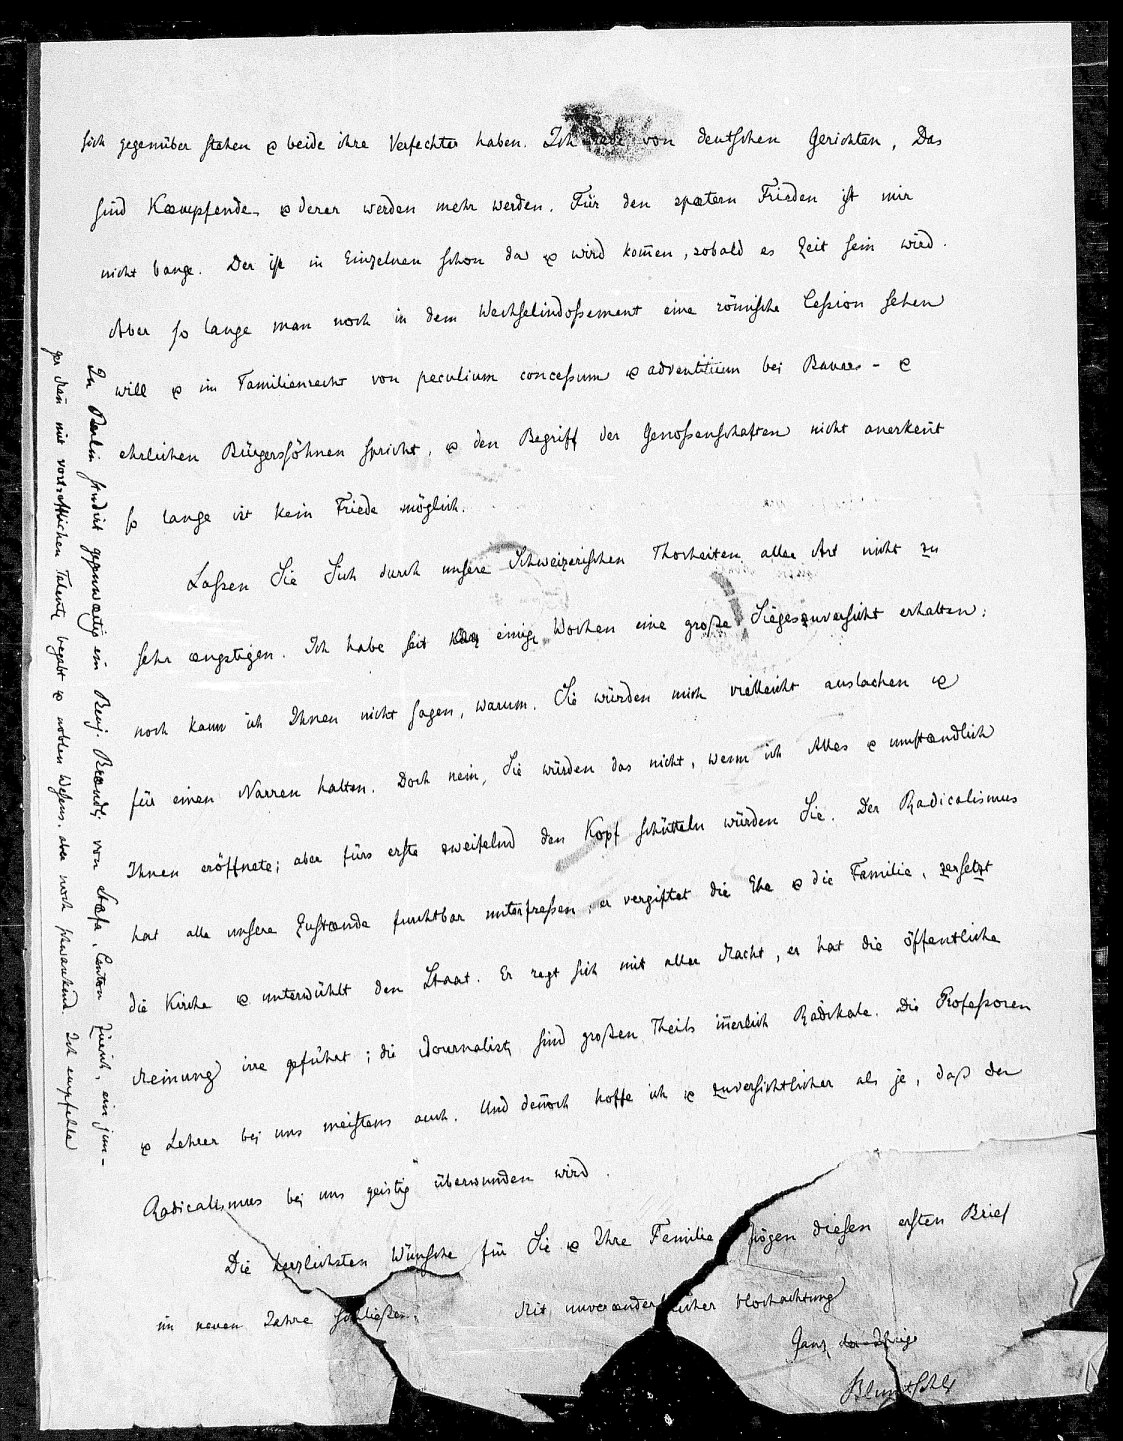 sich gegenüber stehen & beide ihre Verfechter haben. Ich rede von deutschen Gerichten, Das
sind Kæmpfende, & derer werden mehr werden. Für den spætern Frieden ist mir
nicht bange. Der ist in Einzelnen schon da & wird kom̄en, sobald es Zeit sein wird.
Aber so lange man noch in dem Wechselindossement eine römische Cession sehen
will & im Familienrecht von peculium concessum & adventitium bei Bauers- &
ehrlichen Bürgerssöhnen spricht, & den Begriff der Genossenschaften nicht anerkent̄
so lange ist kein Friede möglich.
Lassen Sie Sich durch unsere Schweizerischen Thorheiten aller Art nicht zu
sehr ængstigen. Ich habe seit einige Wochen eine große Siegeszuversicht erhalten;
noch kann ich Ihnen nicht sagen, warum. Sie würden mich vielleicht auslachen &
für einen Narren halten. Doch nein, Sie würden das nicht, wenn ich Alles & umstændlich
Ihnen eröffnete; aber fürs erste zweifelnd den Kopf schütteln würden Sie. Der Radicalismus
hat alle unsere Zustænde furchtbar unterfressen; er vergiftet die Ehe & die Familie, zersetzt
die Kirche & unterwühlt den Staat. Er regt sich mit aller Macht, er hat die öffentliche
Meinung irre geführt; die Journalisten sind großen Theils in̄erlich Radikale. Die Professoren
& Lehrer bei uns meistens auch. Und den̄och hoffe ich & zuversichtlicher als je, daß der
Radicalismus bei uns geistig überwunden wird.
Die herzlichsten Wünsche für Sie & Ihre Familie mögen diesen ersten Brief
im neuen Jahre schließen.
Mit unverænderlicher Hochachtung
Ganz der Ihrige
Bluntschli
In Berlin studirt gegenwærtig ein Benj. Brændli von Stæfa, Canton Zürich, ein jun-
ger Man̄ mit vortrefflichen Talenten begabt & noblen Wesens, aber noch schwankend. Ich empfehle